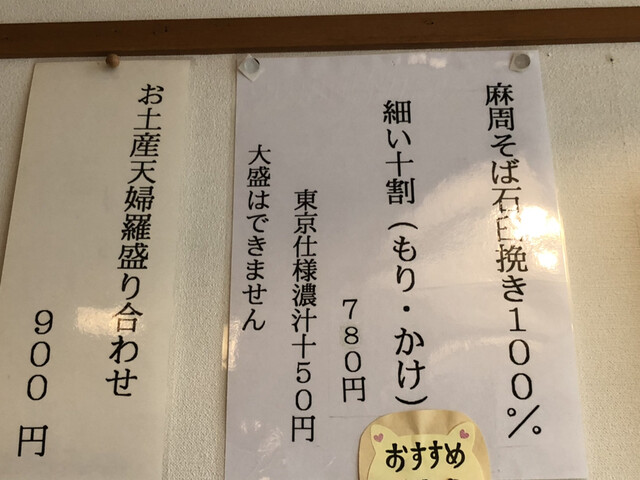 麻周そば石臼挽き100%
細い十割(もり・かけ)
780円
東京仕様濃汁十50円
大盛はできません
おすすめ
お土産天婦羅盛り合わせ
900円